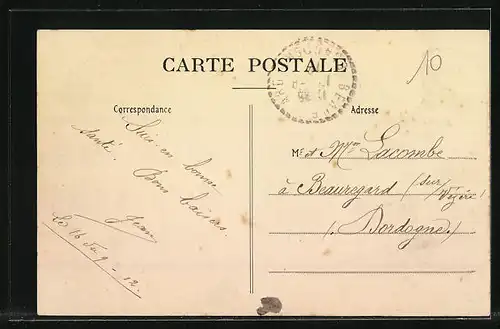 CARTE POSTALE
10
Correspondance
Adresse
Suis en bonne
santé.
Bons baisers.
Jean
Le 16 9 - 12.
Mr et Mme Lacombe
à Beauregard (sur
Vézère)
(Dordogne.)